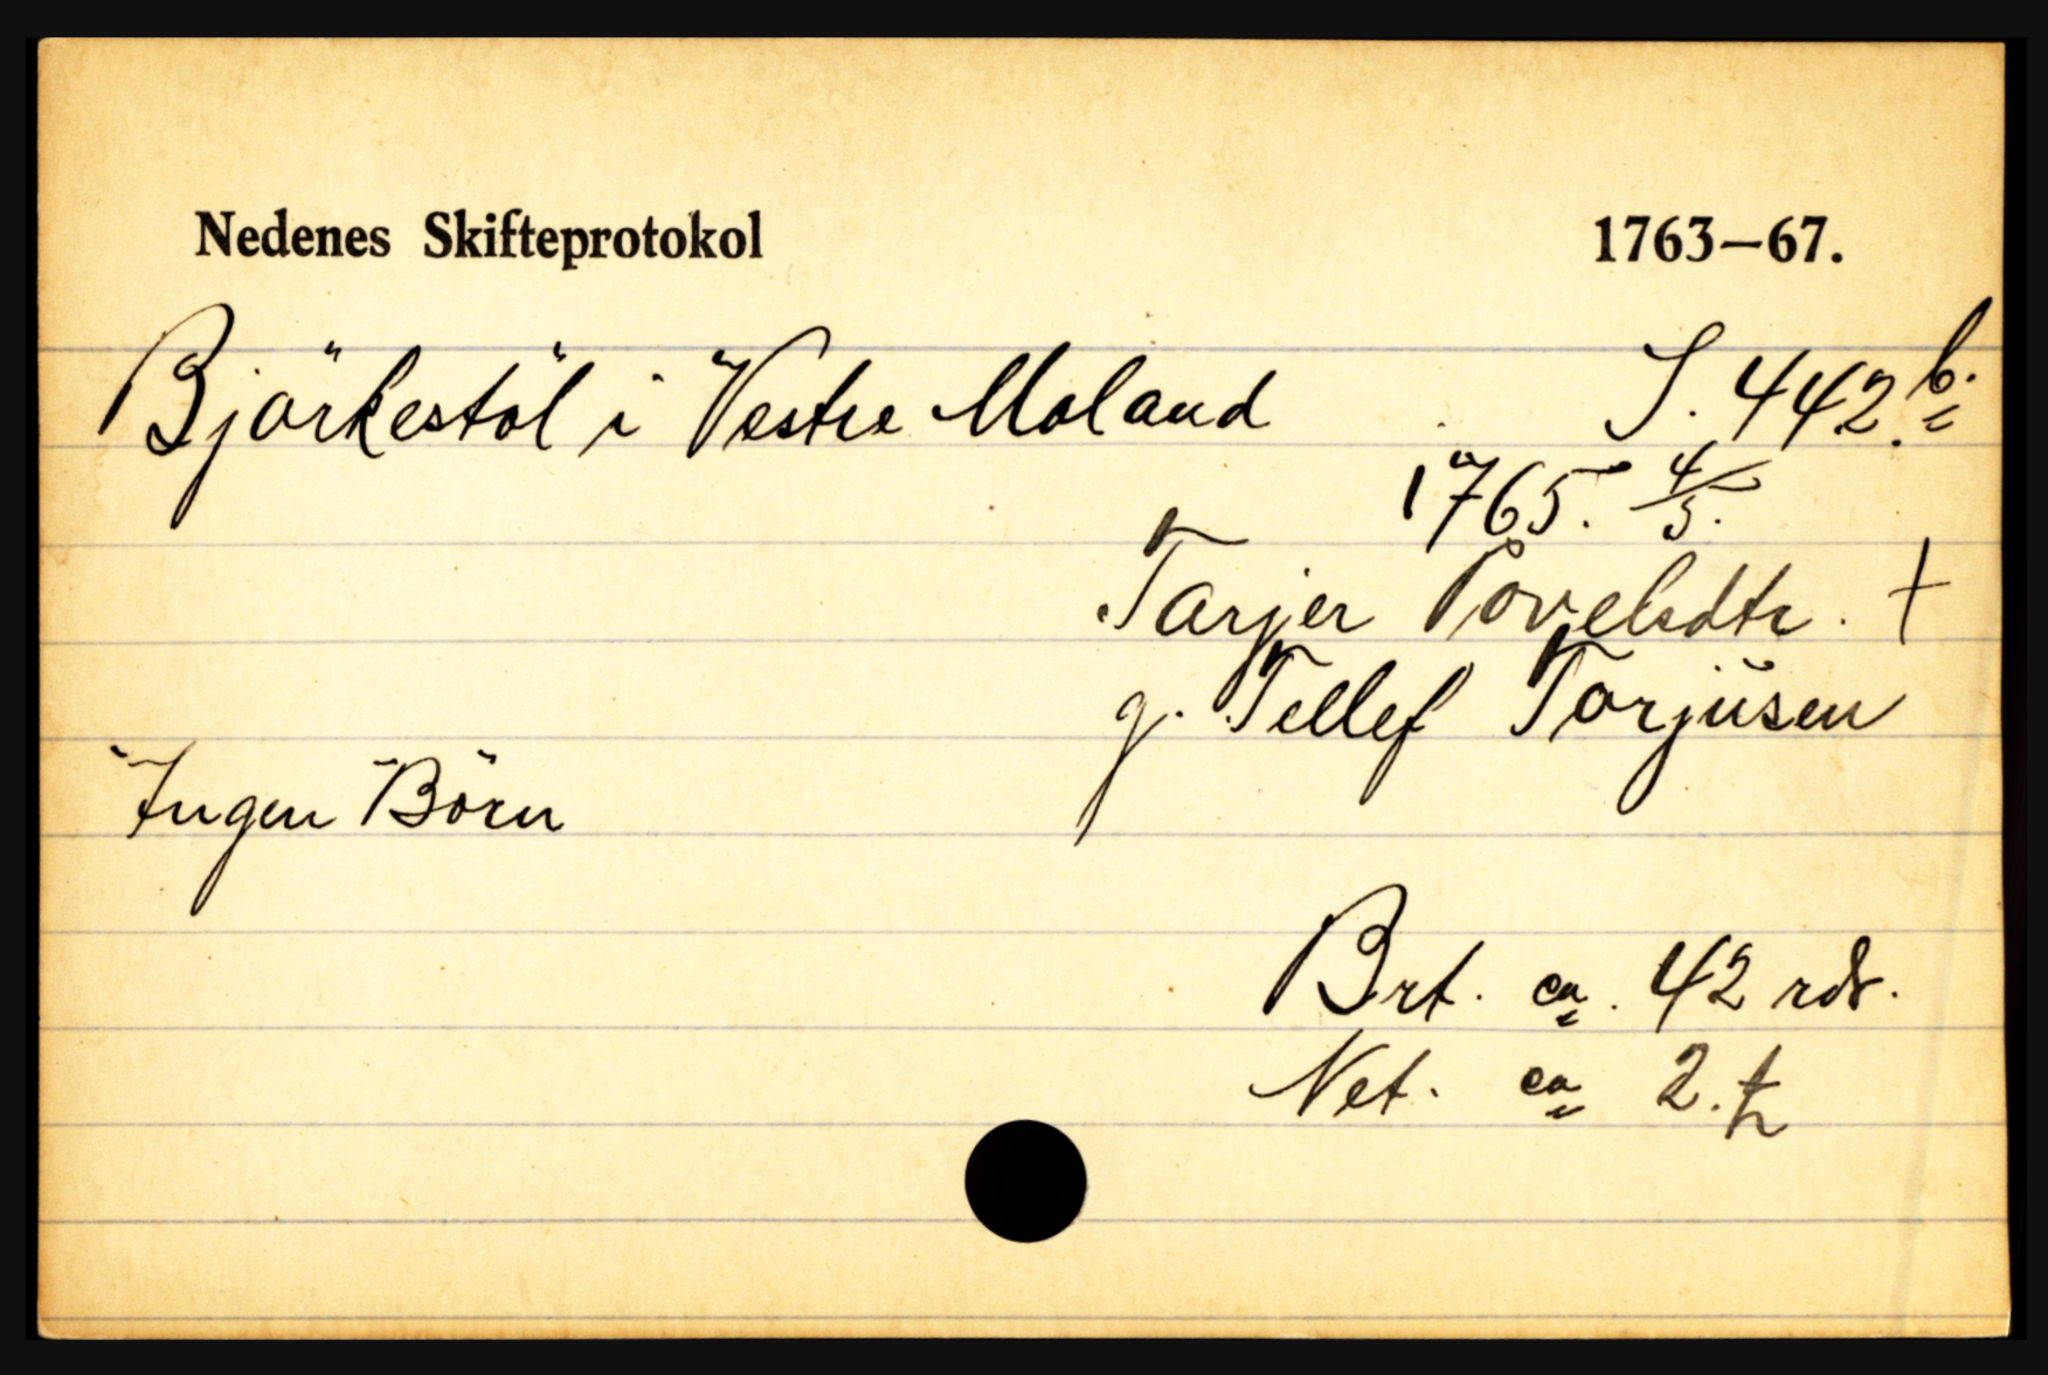 Nedenes Skifteprotokol 1763—67.
Björkestöl i Vestre Moland S. 442 b.
1765. 4/5.
Tarjer Povelsdtr. +
g. Tellef Torjusen
Ingen Börn
Brt. ca. 42 rdr.
Net. ca 2.